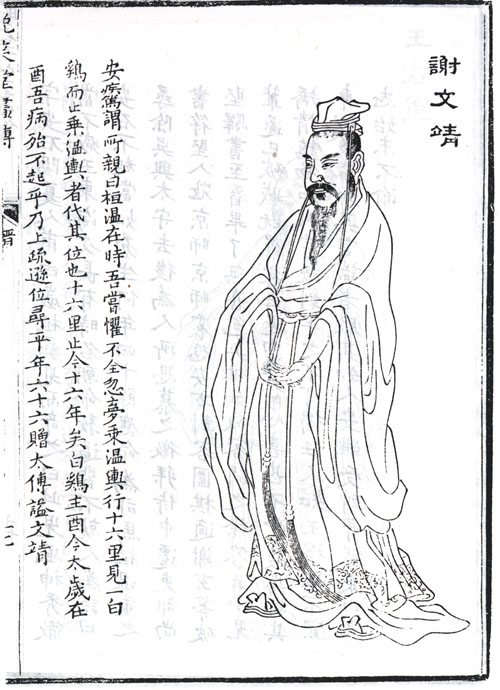 謝文靖
安疾篤謂所親曰桓温在時吾嘗懼不全忽夢乘温輿行十六里見一白
鷄而止乘温輿者代其位也十六里止今十六年矣白鷄主酉今太歲在
酉吾病殆不起乎乃上疏遜位尋卒年六十六贈太傅謚文靖
晉